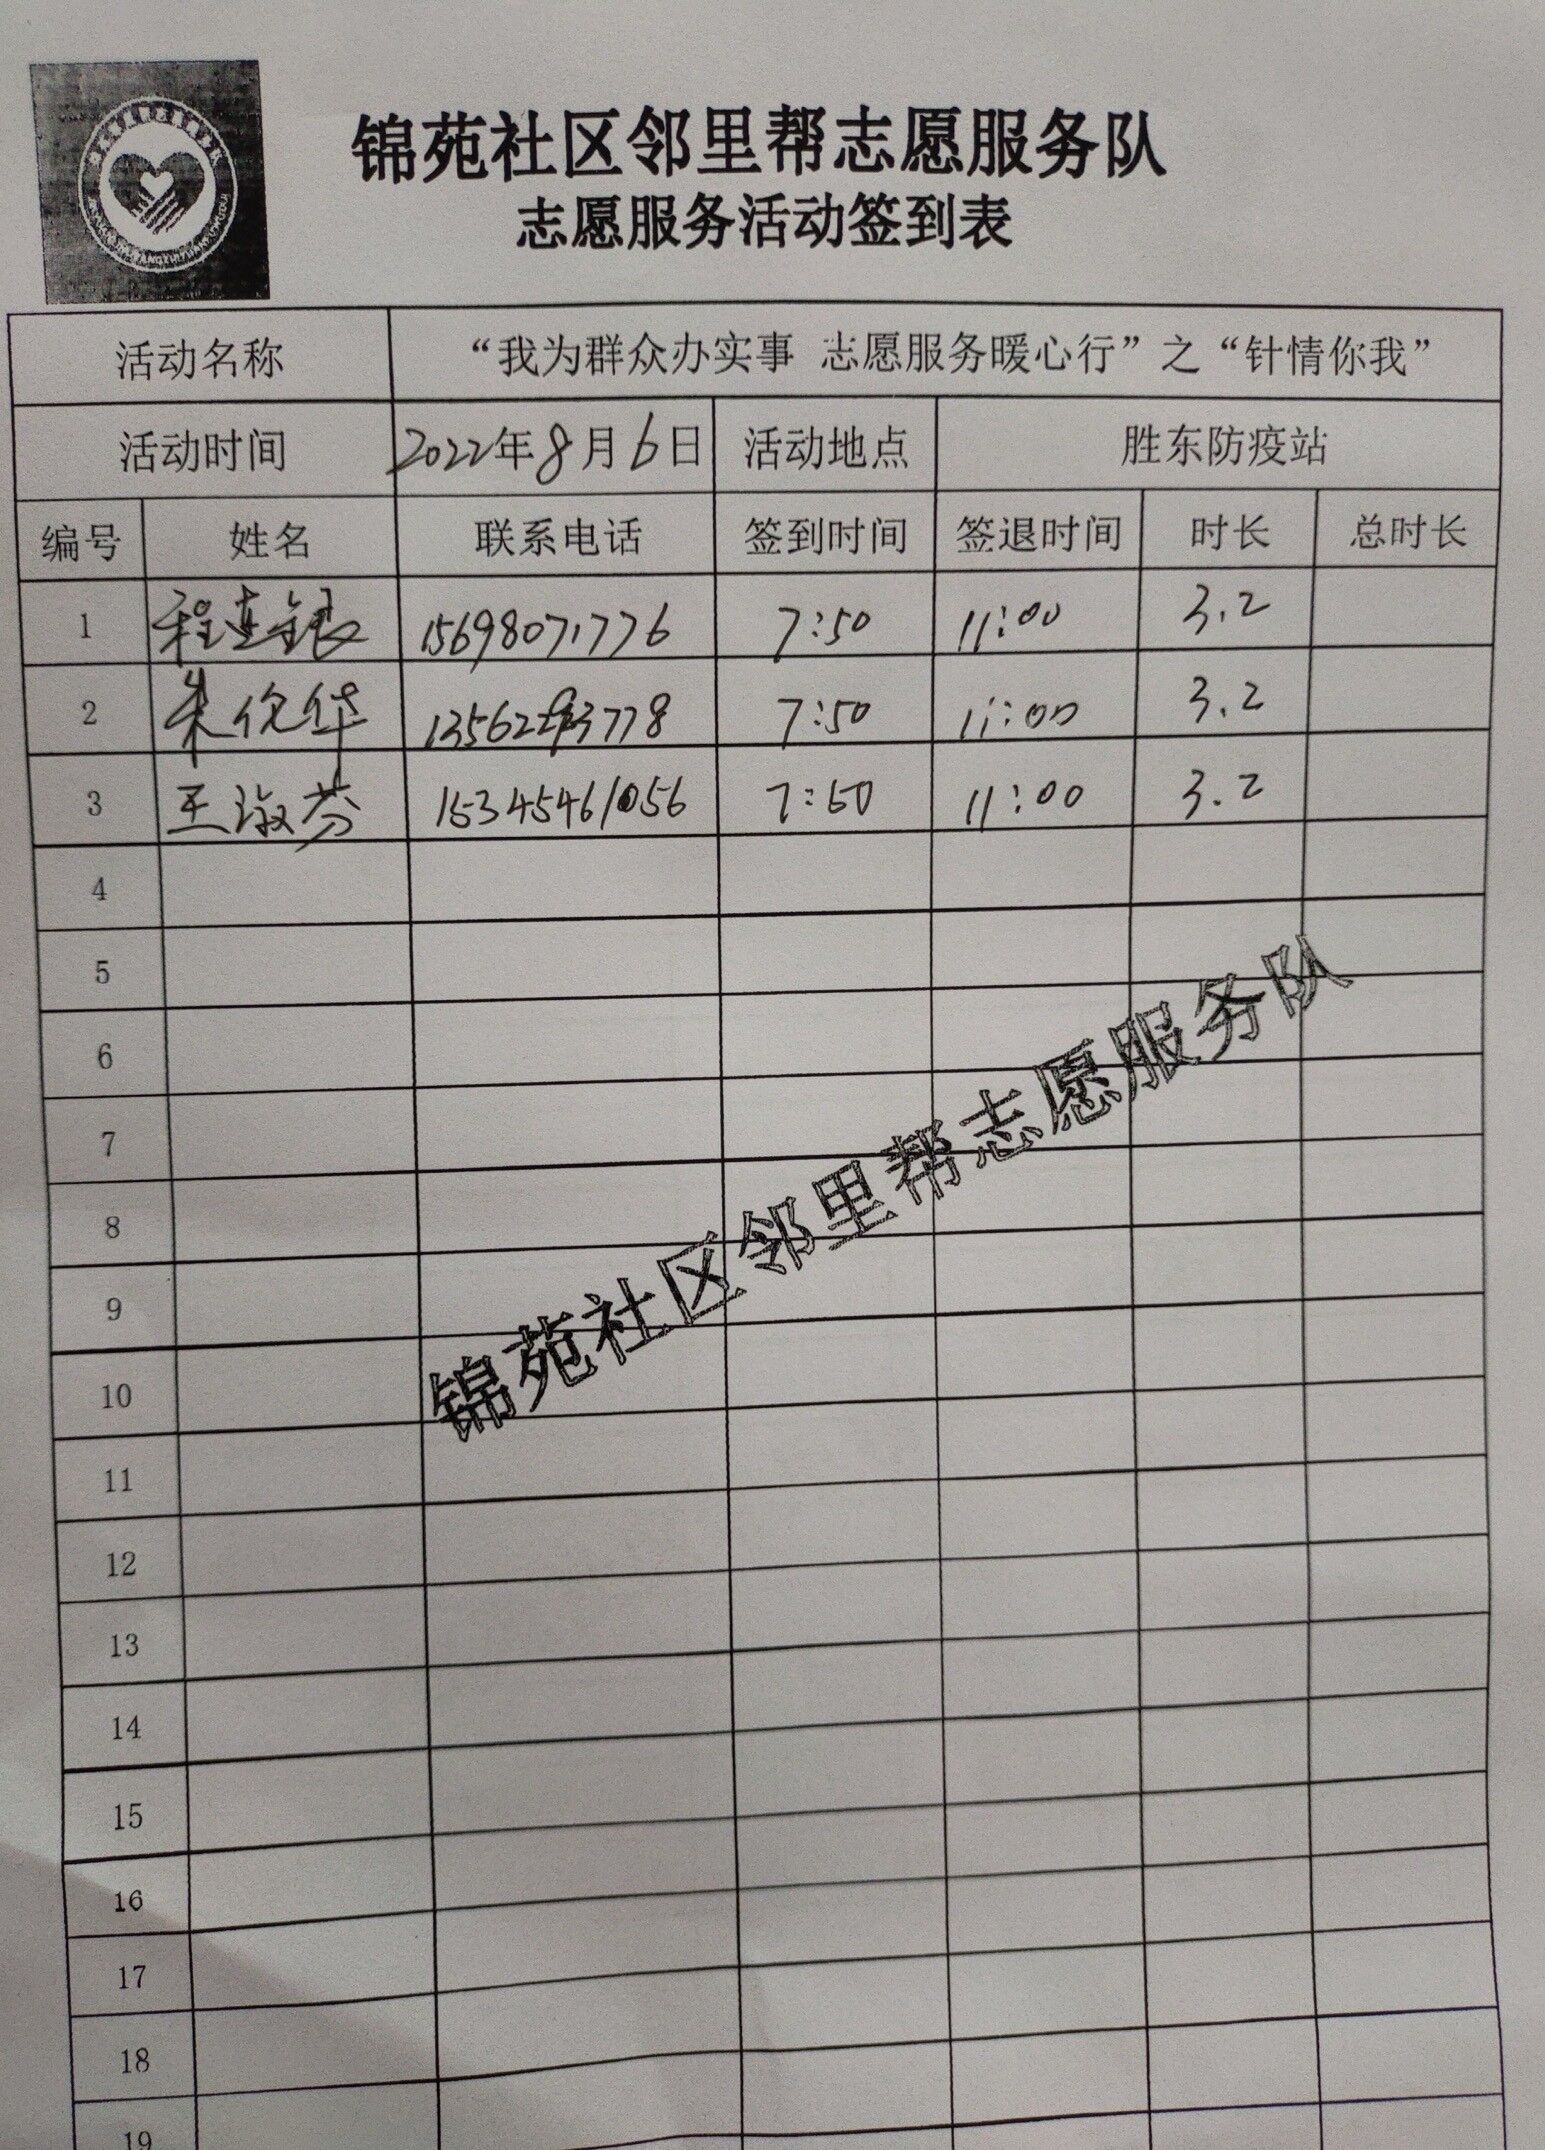 锦苑社区邻里帮志愿服务队
志愿服务活动签到表
活动名称 “我为群众办实事 志愿服务暖心行”之“针情你我”
活动时间 2022年8月6日 活动地点 胜东防疫站
编号 姓名 联系电话 签到时间 签退时间 时长 总时长
1 程连银 15698071776 7:50 11:00 3.2
2 朱华 7:50 11:00 3.2
3 王淑芬 15345461056 7:50 11:00 3.2
4
5
6
7
8
9
10
11
12
13
14
15
16
17
18
19
锦苑社区邻里帮志愿服务队